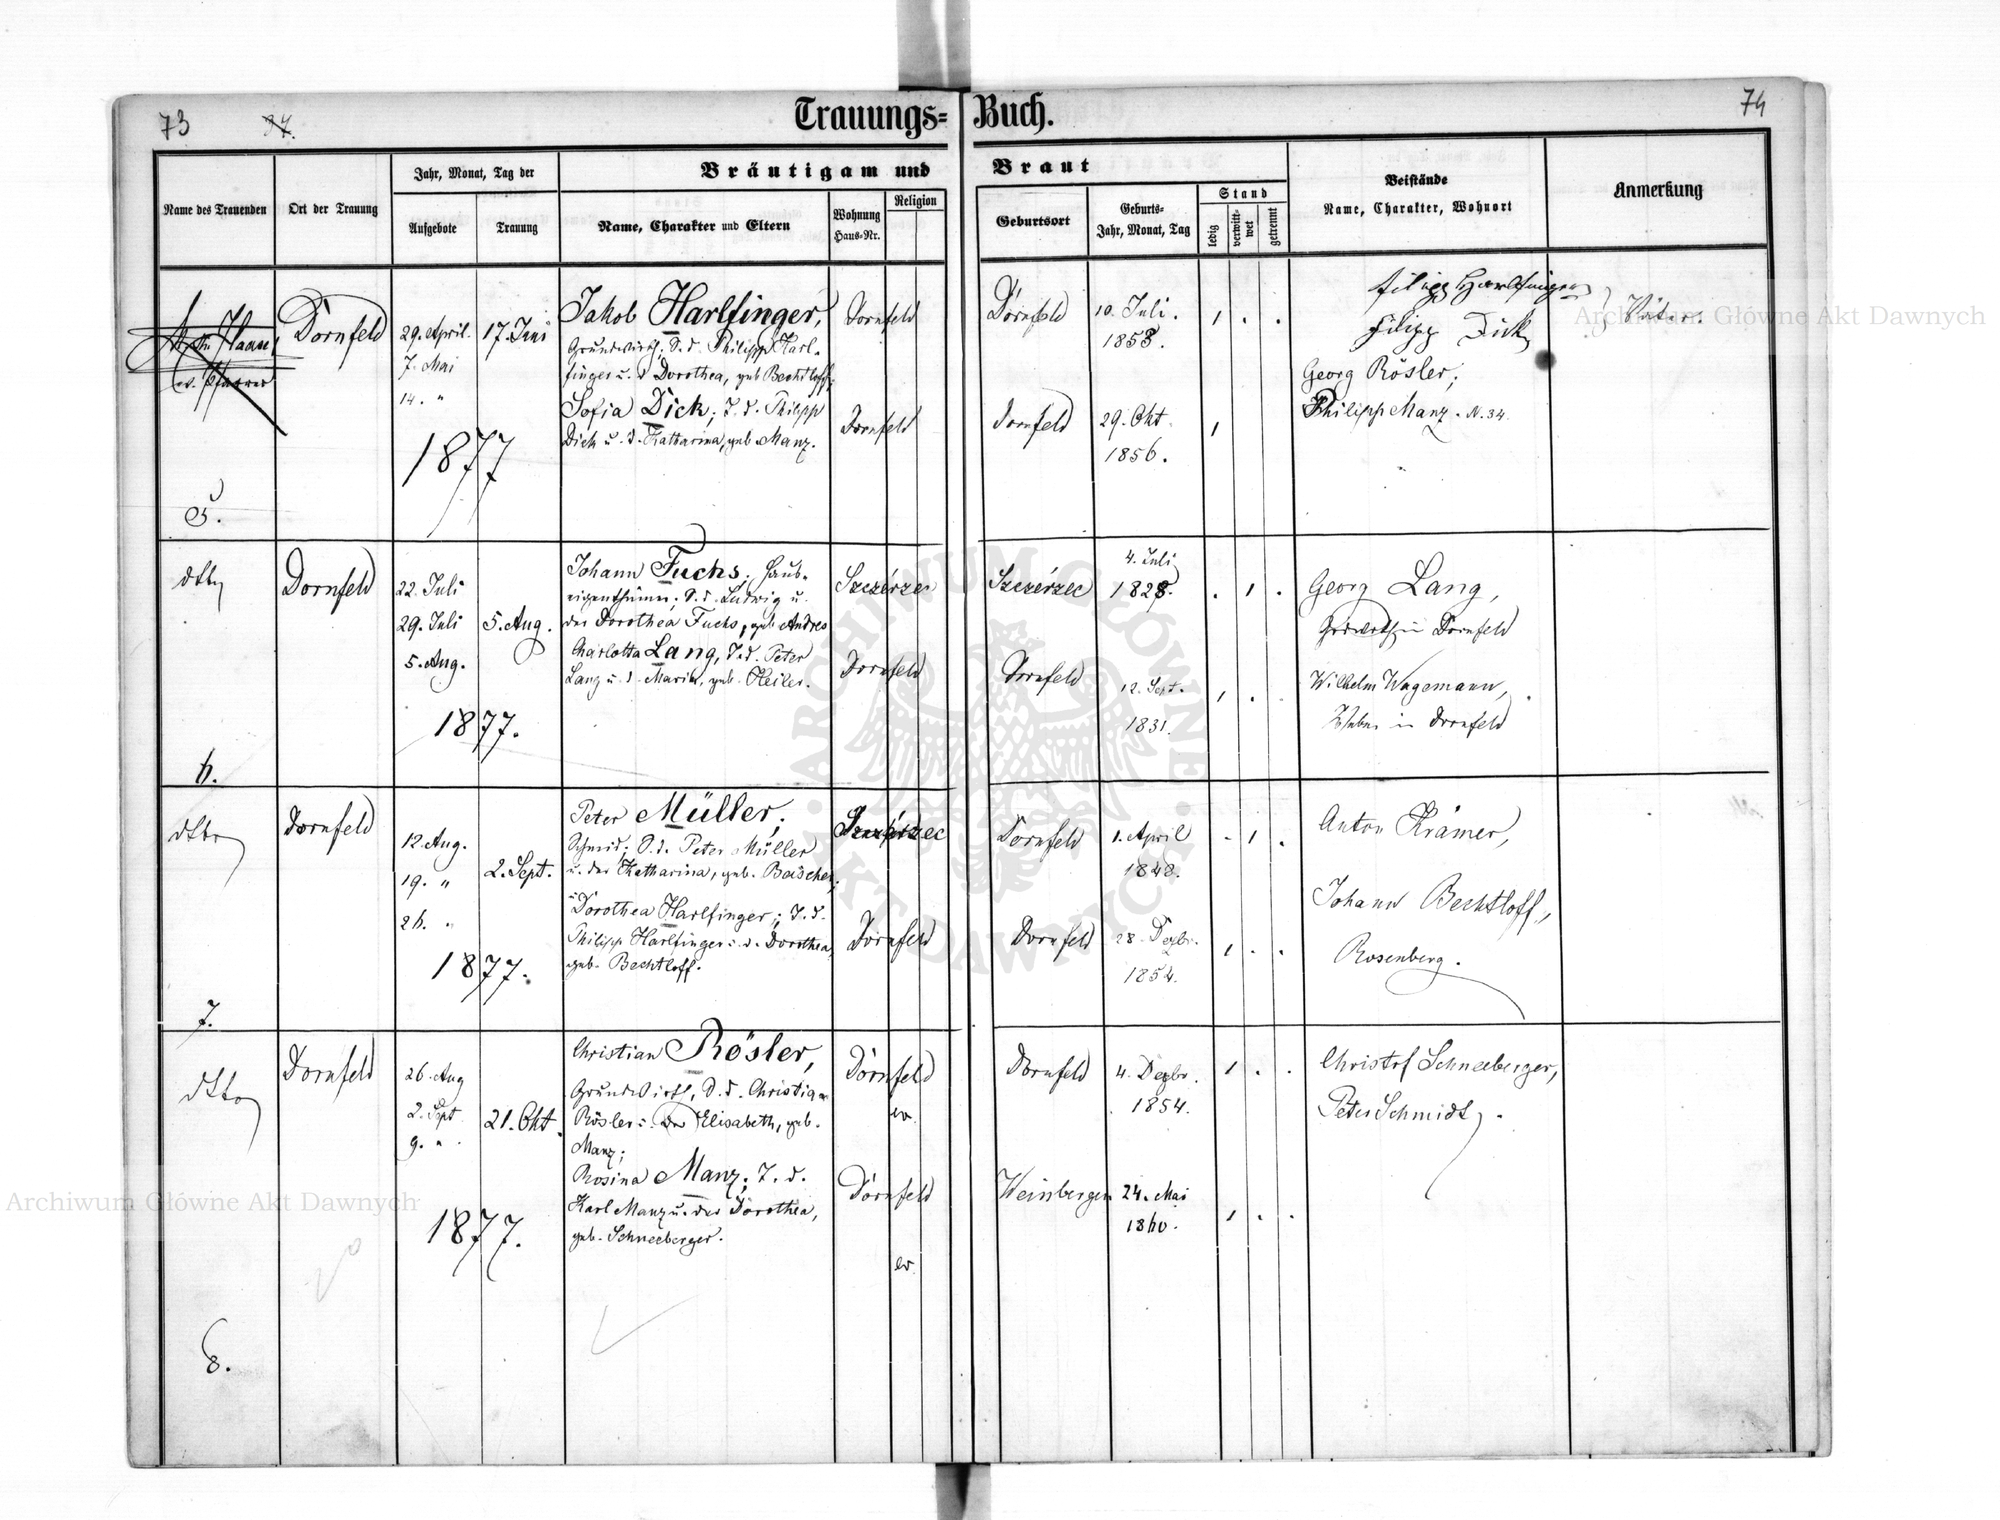 73
Trauungs=Buch.
74
Name des Trauenden
Ort der Trauung
Jahr, Monat, Tag der
Aufgebote
Trauung
Bräutigam und Braut
Name, Charakter und Eltern
Wohnung
Haus-Nr.
Religion
Geburtsort
Geburts-
Jahr, Monat, Tag
Stand
ledig
verwitt-
wet
getrennt
Beistände
Name, Charakter, Wohnort
Anmerkung
Haase
ev. Pfarrer
5.
Dornfeld
29. April.
7. Mai
14. "
17. Juni
1877
Jakob Harlfinger,
Grundwirth; S. d. Philipp Harl-
finger u. d. Dorothea, geb. Bechtloff;
Sofia Dick; T. d. Philipp
Dick u. d. Katharina, geb. Manz.
Dornfeld
Dornfeld
Dornfeld
10. Juli.
1853.
Dornfeld
29. Okt
1856.
Filipp Harlfinger
Filipp Dick
Väter.
Georg Rösler;
Philipp Manz. N. 34.
dtto
6.
Dornfeld
22. Juli
29. Juli
5. Aug.
5. Aug.
1877.
Johann Fuchs; Haus-
eigenthümer; S. d. Ludwig u.
der Dorothea Fuchs, geb. Andres
Charlotta Lang, T. d. Peter
Lang u. d. Maria, geb. Heiler.
Szczérzec
Dornfeld
Szczérzec
4. Juli
1828.
Dornfeld
12. Sept.
1831.
Georg Lang,
Grdwirth in Dornfeld
Wilhelm Wagemann,
Weber in Dornfeld
dtto
7.
Dornfeld
12. Aug.
19. "
26. "
2. Sept.
1877.
Peter Müller,
Schmid; S. d. Peter Müller
u. der Katharina, geb. Bäischer;
Dorothea Harlfinger; T. d.
Philipp Harlfinger u. d. Dorothea,
geb. Bechtloff.
Szczérzec
Dornfeld
Dornfeld
1. April
1848.
Dornfeld
28. Dezbr.
1854.
Anton Krämer,
Johann Bechtloff,
Rosenberg.
dtto
8.
Dornfeld
26. Aug
2. Sept
9. "
21. Okt.
1877.
Christian Rösler,
Grundwirth, S. d. Christian
Rösler u. der Elisabeth, geb.
Manz;
Rosina Manz; T. d.
Karl Manz u. der Dorothea,
geb. Schneeberger.
Dornfeld
ev.
Dornfeld
ev.
Dornfeld
4. Dezbr.
1854.
Weinbergen
24. Mai
1860.
Christof Schneeberger,
Peter Schmidt.
Archiwum Główne Akt Dawnych
Archiwum Główne Akt Dawnych
ARCHIWUM GŁÓWNE AKT DAWNYCH